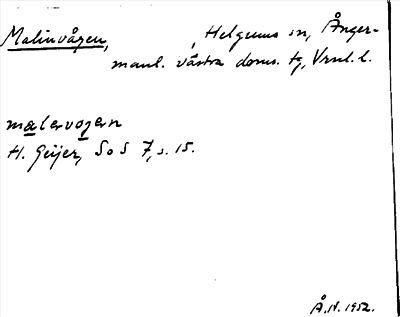 Malinvågen, , Helgums sn, Ånger-
manl. västra doms. tg, Vrnl. l.
mælervogern
H. Geijer, SoS 7, s. 15.
Å.N. 1952.